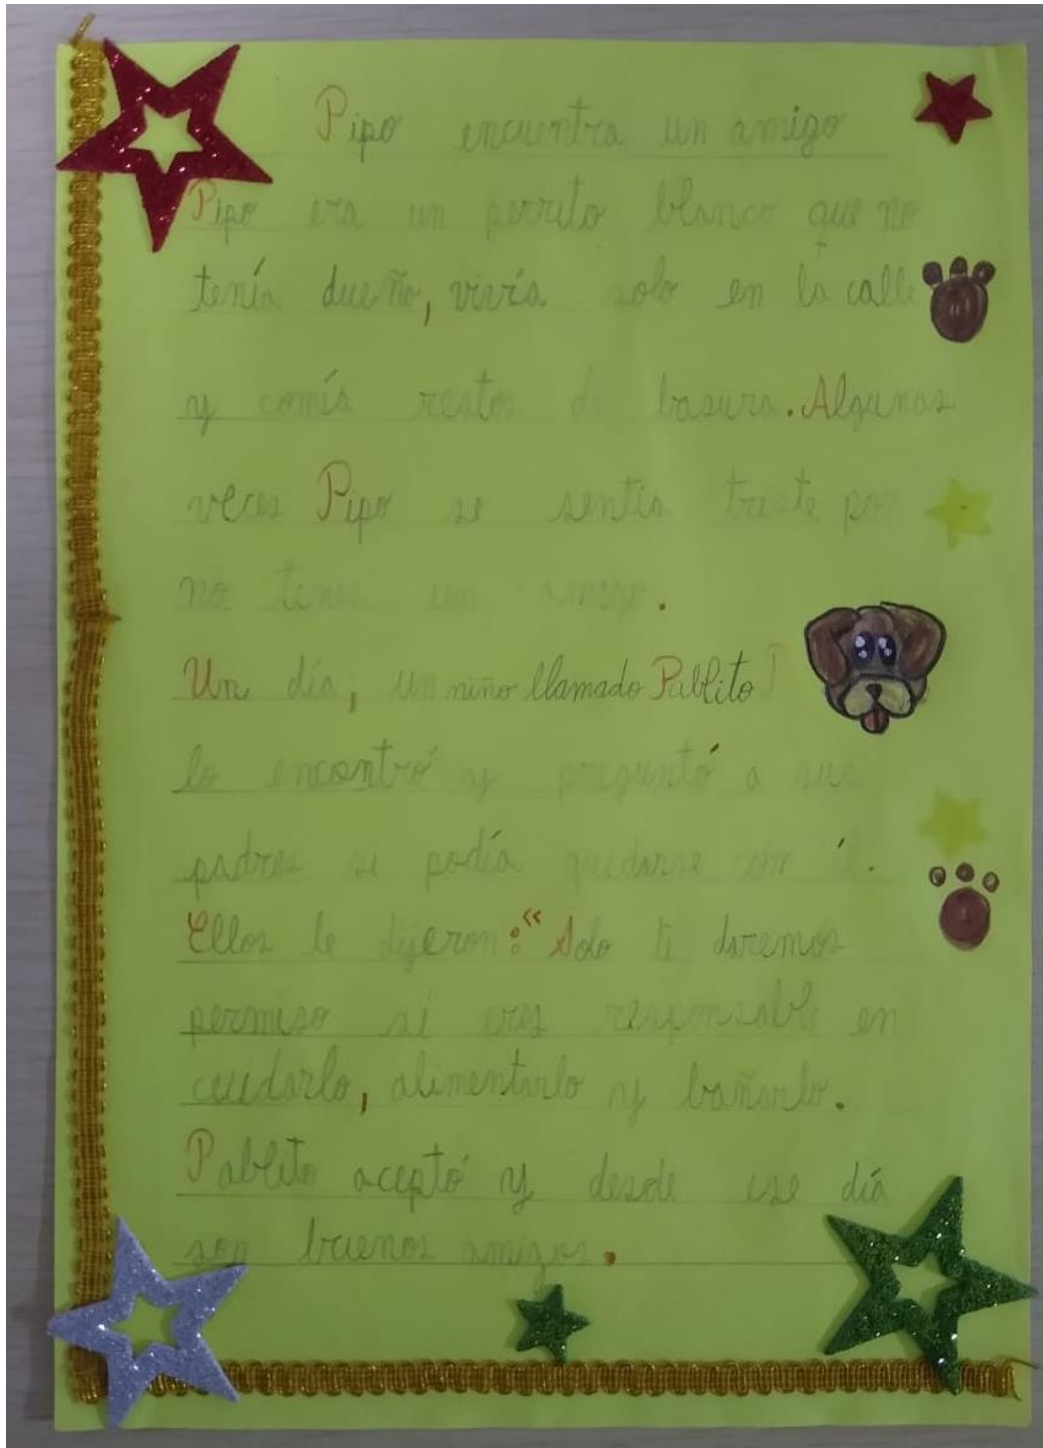 Pipo encuentra un amigo
Pipo era un perrito blanco que no
tenía dueño, vivía solo en la calle
y comía restos de basura. Algunas
veces Pipo se sentía triste por
no tener un amigo.
Un día, un niño llamado Pablito
lo encontró y preguntó a sus
padres si podía quedarse con él.
Ellos le dijeron: “Solo te daremos
permiso si eres responsable en
cuidarlo, alimentarlo y bañarlo.
Pablito aceptó y desde ese día
son buenos amigos.